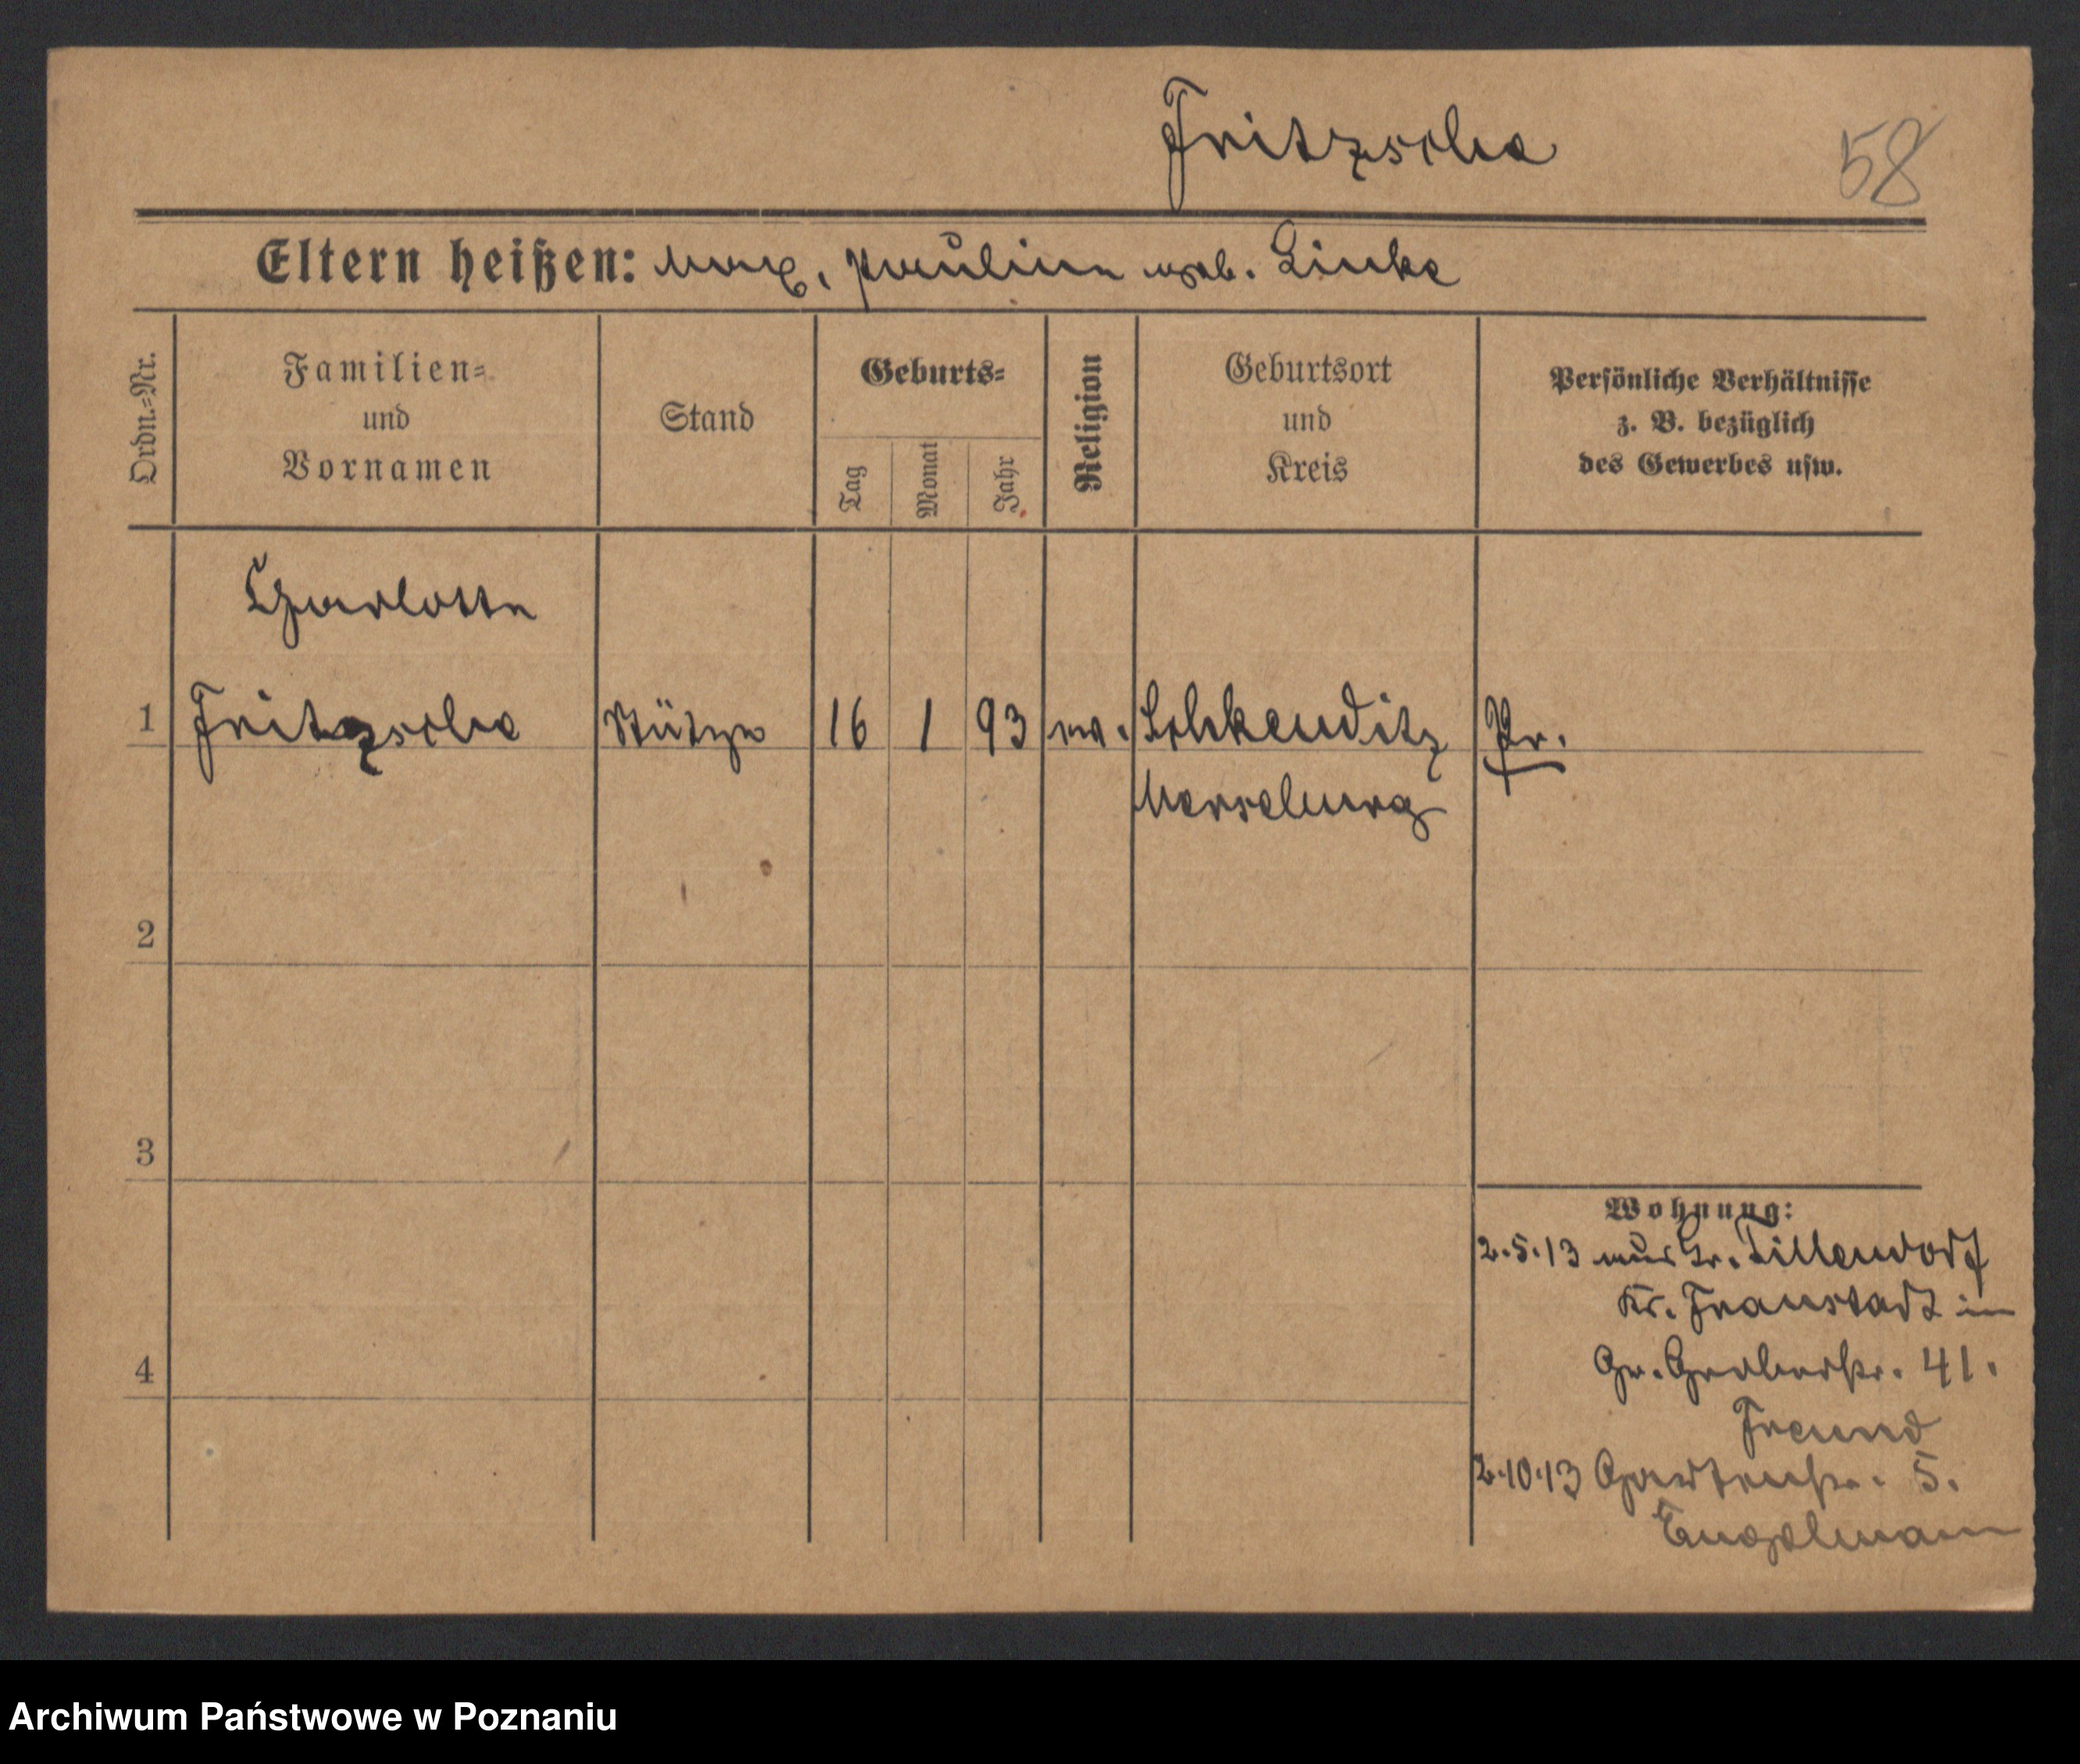 Fritzsche
58
Eltern heißen: Max, Pauline geb. Linke
Ordn.=Nr.
Familien=
und
Vornamen
Stand
Geburts=
Tag
Monat
Jahr
Religion
Geburtsort
und
Kreis
Persönliche Verhältnisse
z. B. bezüglich
des Gewerbes usw.
Charlotte
1 Fritzsche Stütze 16 1 93 ev. Schkeuditz Pr.
Merseburg
2
3
4
Wohnung:
2.5.13 aus Gr. Tillendorf
Kr. Fraustadt in
Gr. Gerberstr. 41.
Freund
2.10.13 Gartenstr. 5.
Engelmann
Archiwum Państwowe w Poznaniu